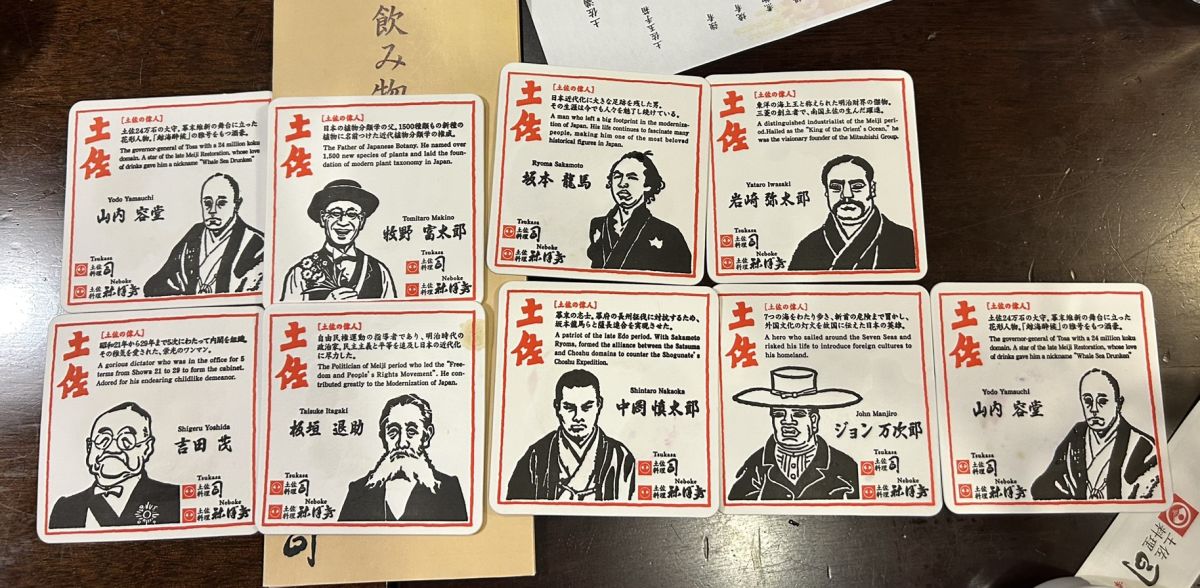 飲み物
土佐
[土佐の偉人]
土佐24万石の大守。幕末維新の舞台に立った
花形人物。「鯨海酔侯」の雅号をもつ酒豪。
The governor-general of Tosa with a 24 million koku
domain. A star of the late Meiji Restoration, whose love
of drinks gave him a nickname "Whale Sea Drunken"
Yodo Yamauchi
山内 容堂
Tsukasa
土佐料理 司
Neboke
土佐料理 祢保希
土佐
[土佐の偉人]
日本の植物分類学の父。1500種類もの新種の
植物に名前つけた近代植物分類学の権威。
The Father of Japanese Botany. He named over
1,500 new species of plants and laid the foun-
dation of modern plant taxonomy in Japan.
Tomitaro Makino
牧野 富太郎
Tsukasa
土佐料理 司
Neboke
土佐料理 祢保希
土佐
[土佐の偉人]
日本近代化に大きな足跡を残した男。
その生涯は今でも人々を魅了し続けている。
A man who left a big footprint in the moderniza-
tion of Japan. His life continues to fascinate many
people, making him one of the most beloved
historical figures in Japan.
Ryoma Sakamoto
坂本 龍馬
Tsukasa
土佐料理 司
Neboke
土佐料理 祢保希
土佐
[土佐の偉人]
東洋の海上王と称えられた明治財界の傑物。
三菱の創立者で、南国土佐の生んだ躍進。
A distinguished industrialist of the Meiji peri-
od.Hailed as the "King of the Orient's Ocean," he
was the visionary founder of the Mitsubishi Group.
Yataro Iwasaki
岩崎 弥太郎
Tsukasa
土佐料理 司
Neboke
土佐料理 祢保希
土佐
[土佐の偉人]
昭和21年から29年まで5次にわたって内閣を組織。
その稚気を愛された、栄光のワンマン。
A gorious dictator who was in the office for 5
terms from Showa 21 to 29 to form the cabinet.
Adored for his endearing childlike demeanor.
Shigeru Yoshida
吉田 茂
Tsukasa
土佐料理 司
Neboke
土佐料理 祢保希
土佐
[土佐の偉人]
自由民権運動の指導者であり、明治時代の
政治家。民主主義と平等を追及し日本の近代化
に尽力した。
The Politician of Meiji period who led the "Free-
dom and People's Rights Movement". He con-
tributed greatly to the Modernization of Japan.
Taisuke Itagaki
板垣 退助
Tsukasa
土佐料理 司
Neboke
土佐料理 祢保希
土佐
[土佐の偉人]
幕末の志士。幕府の長州征伐に対抗するため、
坂本龍馬らと薩長連合を実現させた。
A patriot of the late Edo period. With Sakamoto
Ryoma, formed the alliance between the Satsuma
and Choshu domains to counter the Shogunate's
Choshu Expedition.
Shintaro Nakaoka
中岡 慎太郎
Tsukasa
土佐料理 司
Neboke
土佐料理 祢保希
土佐
[土佐の偉人]
7つの海をわたり歩き、斬首の危険まで冒かし、
外国文化の灯火を故国に伝えた日本の英雄。
A hero who sailed around the Seven Seas and
risked his life to introduce foreign cultures to
his homeland.
John Manjiro
ジョン 万次郎
Tsukasa
土佐料理 司
Neboke
土佐料理 祢保希
土佐
[土佐の偉人]
土佐24万石の大守。幕末維新の舞台に立った
花形人物。「鯨海酔侯」の雅号をもつ酒豪。
The governor-general of Tosa with a 24 million koku
domain. A star of the late Meiji Restoration, whose love
of drinks gave him a nickname "Whale Sea Drunken"
Yodo Yamauchi
山内 容堂
Tsukasa
土佐料理 司
Neboke
土佐料理 祢保希
司
土佐料理 司